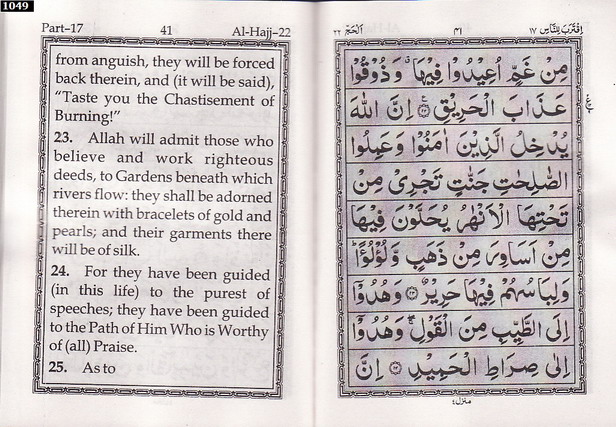 1049
Part-17 41 Al-Hajj-22
from anguish, they will be forced
back therein, and (it will be said),
“Taste you the Chastisement of
Burning!”
23. Allah will admit those who
believe and work righteous
deeds, to Gardens beneath which
rivers flow: they shall be adorned
therein with bracelets of gold and
pearls; and their garments there
will be of silk.
24. For they have been guided
(in this life) to the purest of
speeches; they have been guided
to the Path of Him Who is Worthy
of (all) Praise.
25. As to
اِقْتَرَبَ لِلنَّاسِ ١٧ ٤١ اَلْحَجّ ٢٢
مِنْ غَمٍّ اُعِيْدُوْا فِيْهَا ۗ وَ ذُوْقُوْا
عَذَابَ الْحَرِيْقِ ۝٢٢ اِنَّ اللّٰهَ
يُدْخِلُ الَّذِيْنَ اٰمَنُوْا وَ عَمِلُوا
الصّٰلِحٰتِ جَنّٰتٍ تَجْرِيْ مِنْ
تَحْتِهَا الْاَنْهٰرُ يُحَلَّوْنَ فِيْهَا
مِنْ اَسَاوِرَ مِنْ ذَهَبٍ وَّ لُؤْلُؤًا ؕ
وَ لِبَاسُهُمْ فِيْهَا حَرِيْرٌ ۝٢٣ وَ هُدُوْۤا
اِلَى الطَّيِّبِ مِنَ الْقَوْلِ ۖۚ وَ هُدُوْۤا
اِلٰى صِرَاطِ الْحَمِيْدِ ۝٢٤ اِنَّ
منزل ٤